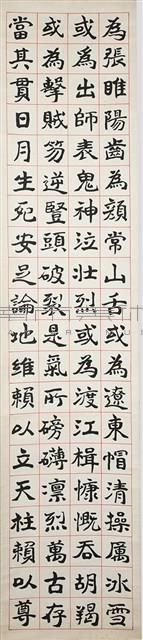 為張睢陽齒為顏常山舌或為遼東帽清操厲冰雪
或為出師表鬼神泣壯烈或為渡江楫慷慨吞胡羯
或為擊賊笏逆豎頭破裂是氣所磅礴凜烈萬古存
當其貫日月生死安足論地維賴以立天柱賴以尊